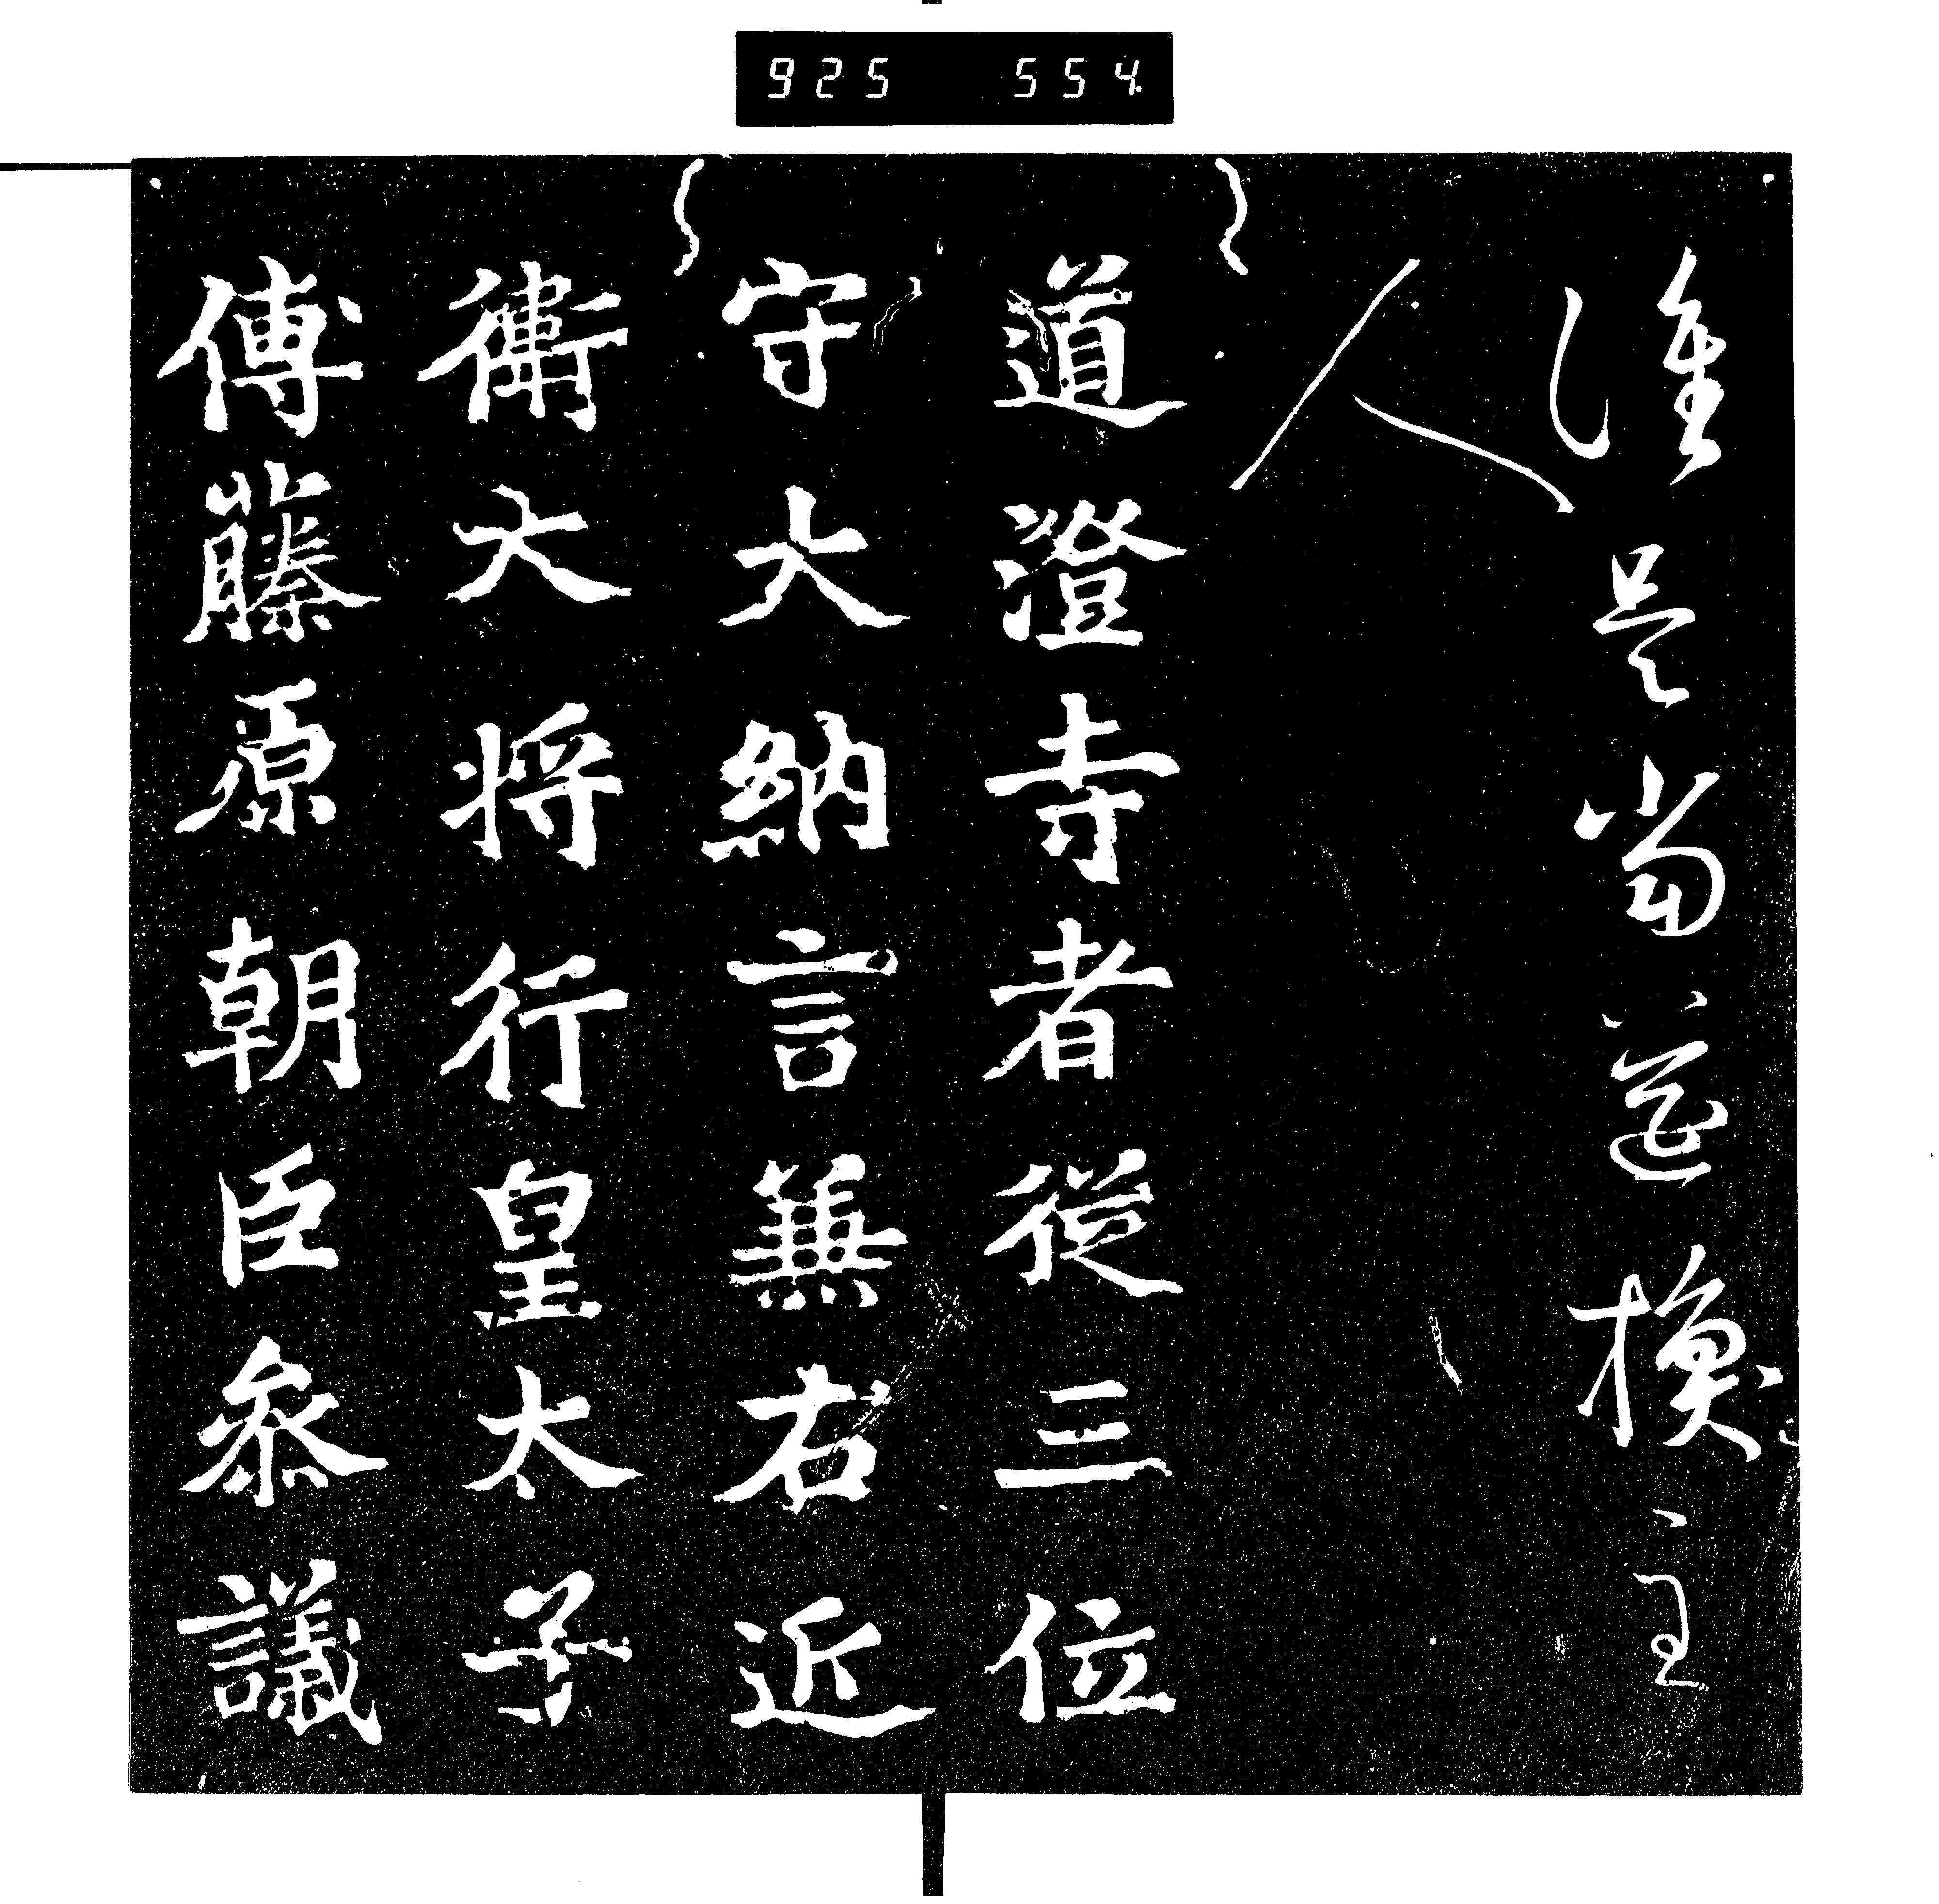 925 554
誰是当莚撰主
人
道澄寺者従三位
守大納言兼右近
衛大将行皇太子
傅藤原朝臣参議